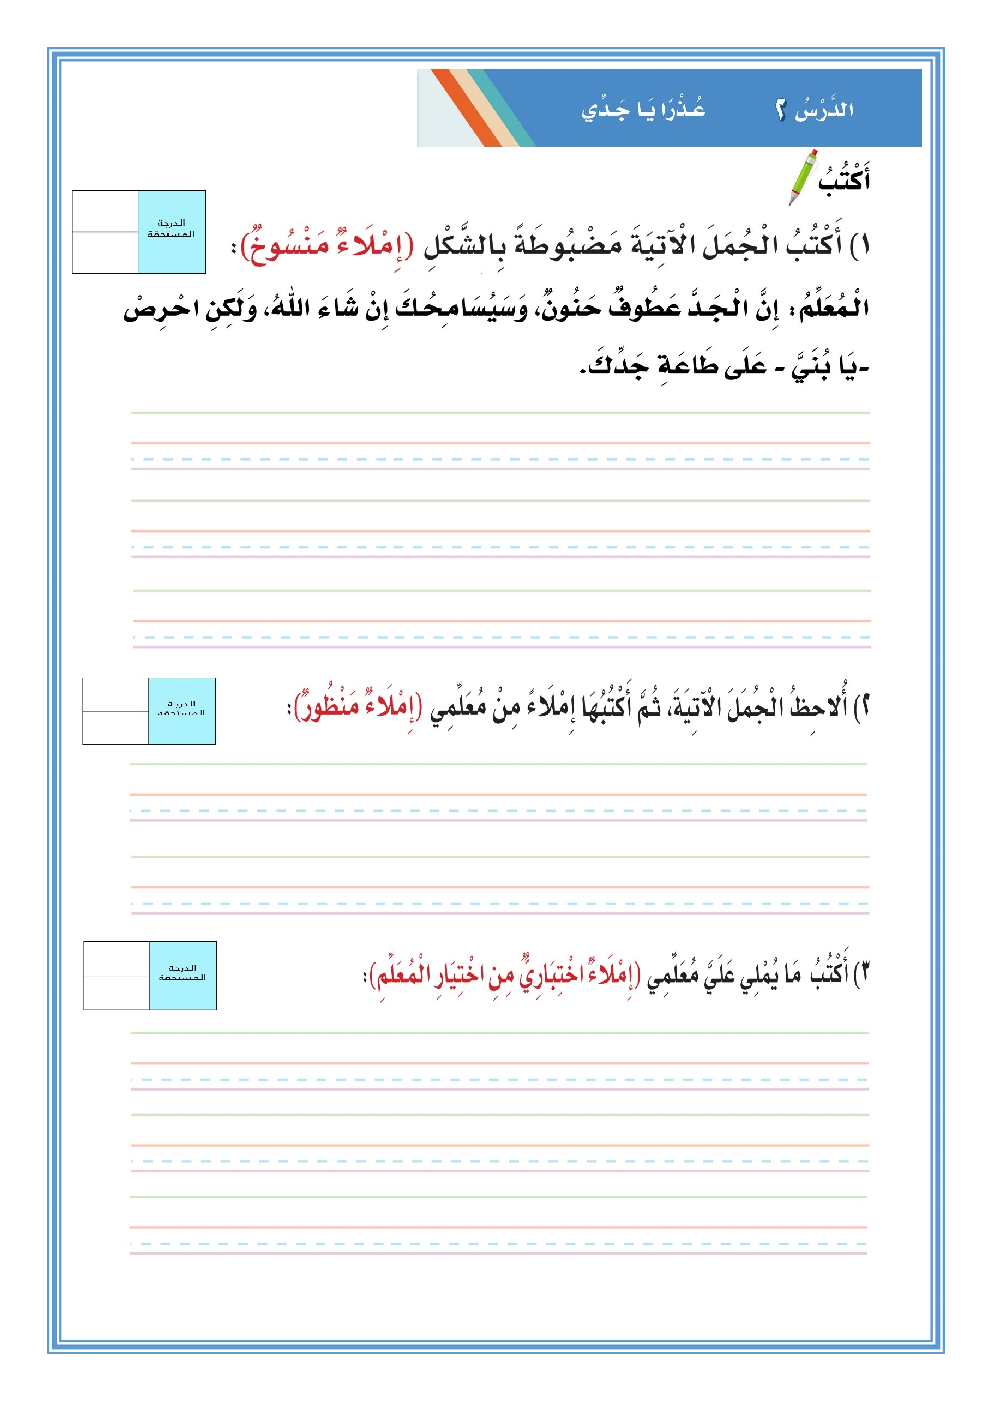 الدَّرْسُ ٢ عُـذْرًا يَـا جَـدِّي
أَكْتُبُ
الدرجة
المستحقة
١) أَكْتُبُ الْجُمَلَ الْآتِيَةَ مَضْبُوطَةً بِالشَّكْلِ (إِمْلَاءٌ مَنْسُوخٌ):
الْمُعَلِّمُ: إِنَّ الْجَدَّ عَطُوفٌ حَنُونٌ، وَسَيُسَامِحُكَ إِنْ شَاءَ اللهُ، وَلَكِنِ احْرِصْ
-يَا بُنَيَّ - عَلَى طَاعَةِ جَدِّكَ.
الدرجة
المستحقة
٢) أُلاحِظُ الْجُمَلَ الْآتِيَةَ، ثُمَّ أَكْتُبُهَا إِمْلَاءً مِنْ مُعَلِّمِي (إِمْلَاءٌ مَنْظُورٌ):
الدرجة
المستحقة
٣) أَكْتُبُ مَا يُمْلِي عَلَيَّ مُعَلِّمِي (إِمْلَاءٌ اخْتِبَارِيٌّ مِنِ اخْتِيَارِ الْمُعَلِّمِ):